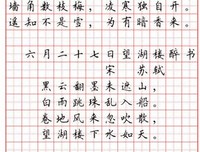 墙角数枝梅，凌寒独自开。
遥知不是雪，为有暗香来。
六月二十七日望湖楼醉书
宋 苏轼
黑云翻墨未遮山，
白雨跳珠乱入船。
卷地风来忽吹散，
望湖楼下水如天。